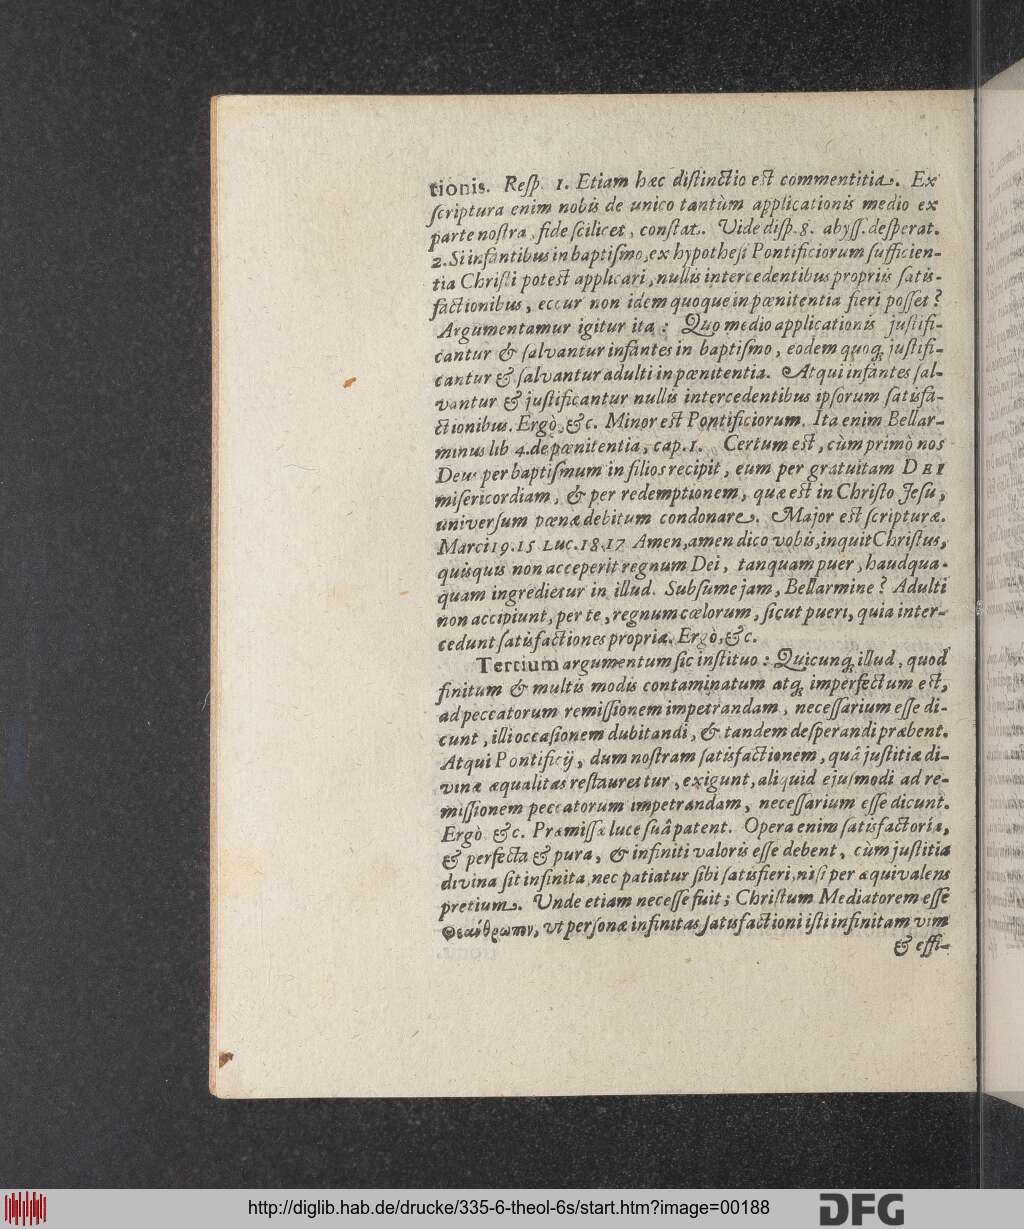 tionis. Resp. 1. Etiam hæc distinctio est commentitia. Ex
scriptura enim nobis de unico tantùm applicationis medio ex
parte nostra, fide scilicet, constat. Vide disp. 8. abyss. desperat.
2. Si infantibus in baptismo, ex hypothesi Pontificiorum sufficien-
tia Christi potest applicari, nullis intercedentibus propriis satis-
factionibus, eccur non idem quoque in pœnitentia fieri posset?
Argumentamur igitur ita: Quo medio applicationis justifi-
cantur & salvantur infantes in baptismo, eodem quoq; justifi-
cantur & salvantur adulti in pœnitentia. Atqui infantes sal-
vantur & justificantur nullis intercedentibus ipsorum satisfa-
ctionibus. Ergò, &c. Minor est Pontificiorum. Ita enim Bellar-
minus lib 4. de pœnitentia, cap. 1. Certum est, cùm primò nos
Deus per baptismum in filios recipit, eum per gratuitam DEI
misericordiam, & per redemptionem, quæ est in Christo Jesu,
universum pœnæ debitum condonare. Major est scripturæ.
Marci 19. 15 Luc. 18. 17 Amen, amen dico vobis, inquit Christus,
quisquis non acceperit regnum Dei, tanquam puer, haudqua-
quam ingredietur in illud. Subsume jam, Bellarmine? Adulti
non accipiunt, per te, regnum cœlorum, sicut pueri, quia inter-
cedunt satisfactiones propriæ. Ergò, &c.
Tertium argumentum sic instituo: Quicunq; illud, quod
finitum & multis modis contaminatum atq; imperfectum est,
ad peccatorum remissionem impetrandam, necessarium esse di-
cunt, illi occasionem dubitandi, & tandem desperandi præbent.
Atqui Pontificij, dum nostram satisfactionem, quâ justitiæ di-
vinæ æqualitas restauretur, exigunt, aliquid ejusmodi ad re-
missionem peccatorum impetrandam, necessarium esse dicunt.
Ergò &c. Præmissæ luce suâ patent. Opera enim satisfactoria,
& perfecta & pura, & infiniti valoris esse debent, cùm justitia
divina sit infinita, nec patiatur sibi satisfieri, nisi per æquivalens
pretium. Unde etiam necesse fuit; Christum Mediatorem esse
Θεάνθρωπον, ut personæ infinitas satisfactioni isti infinitam vim
& effi-
http://diglib.hab.de/drucke/335-6-theol-6s/start.htm?image=00188
DFG